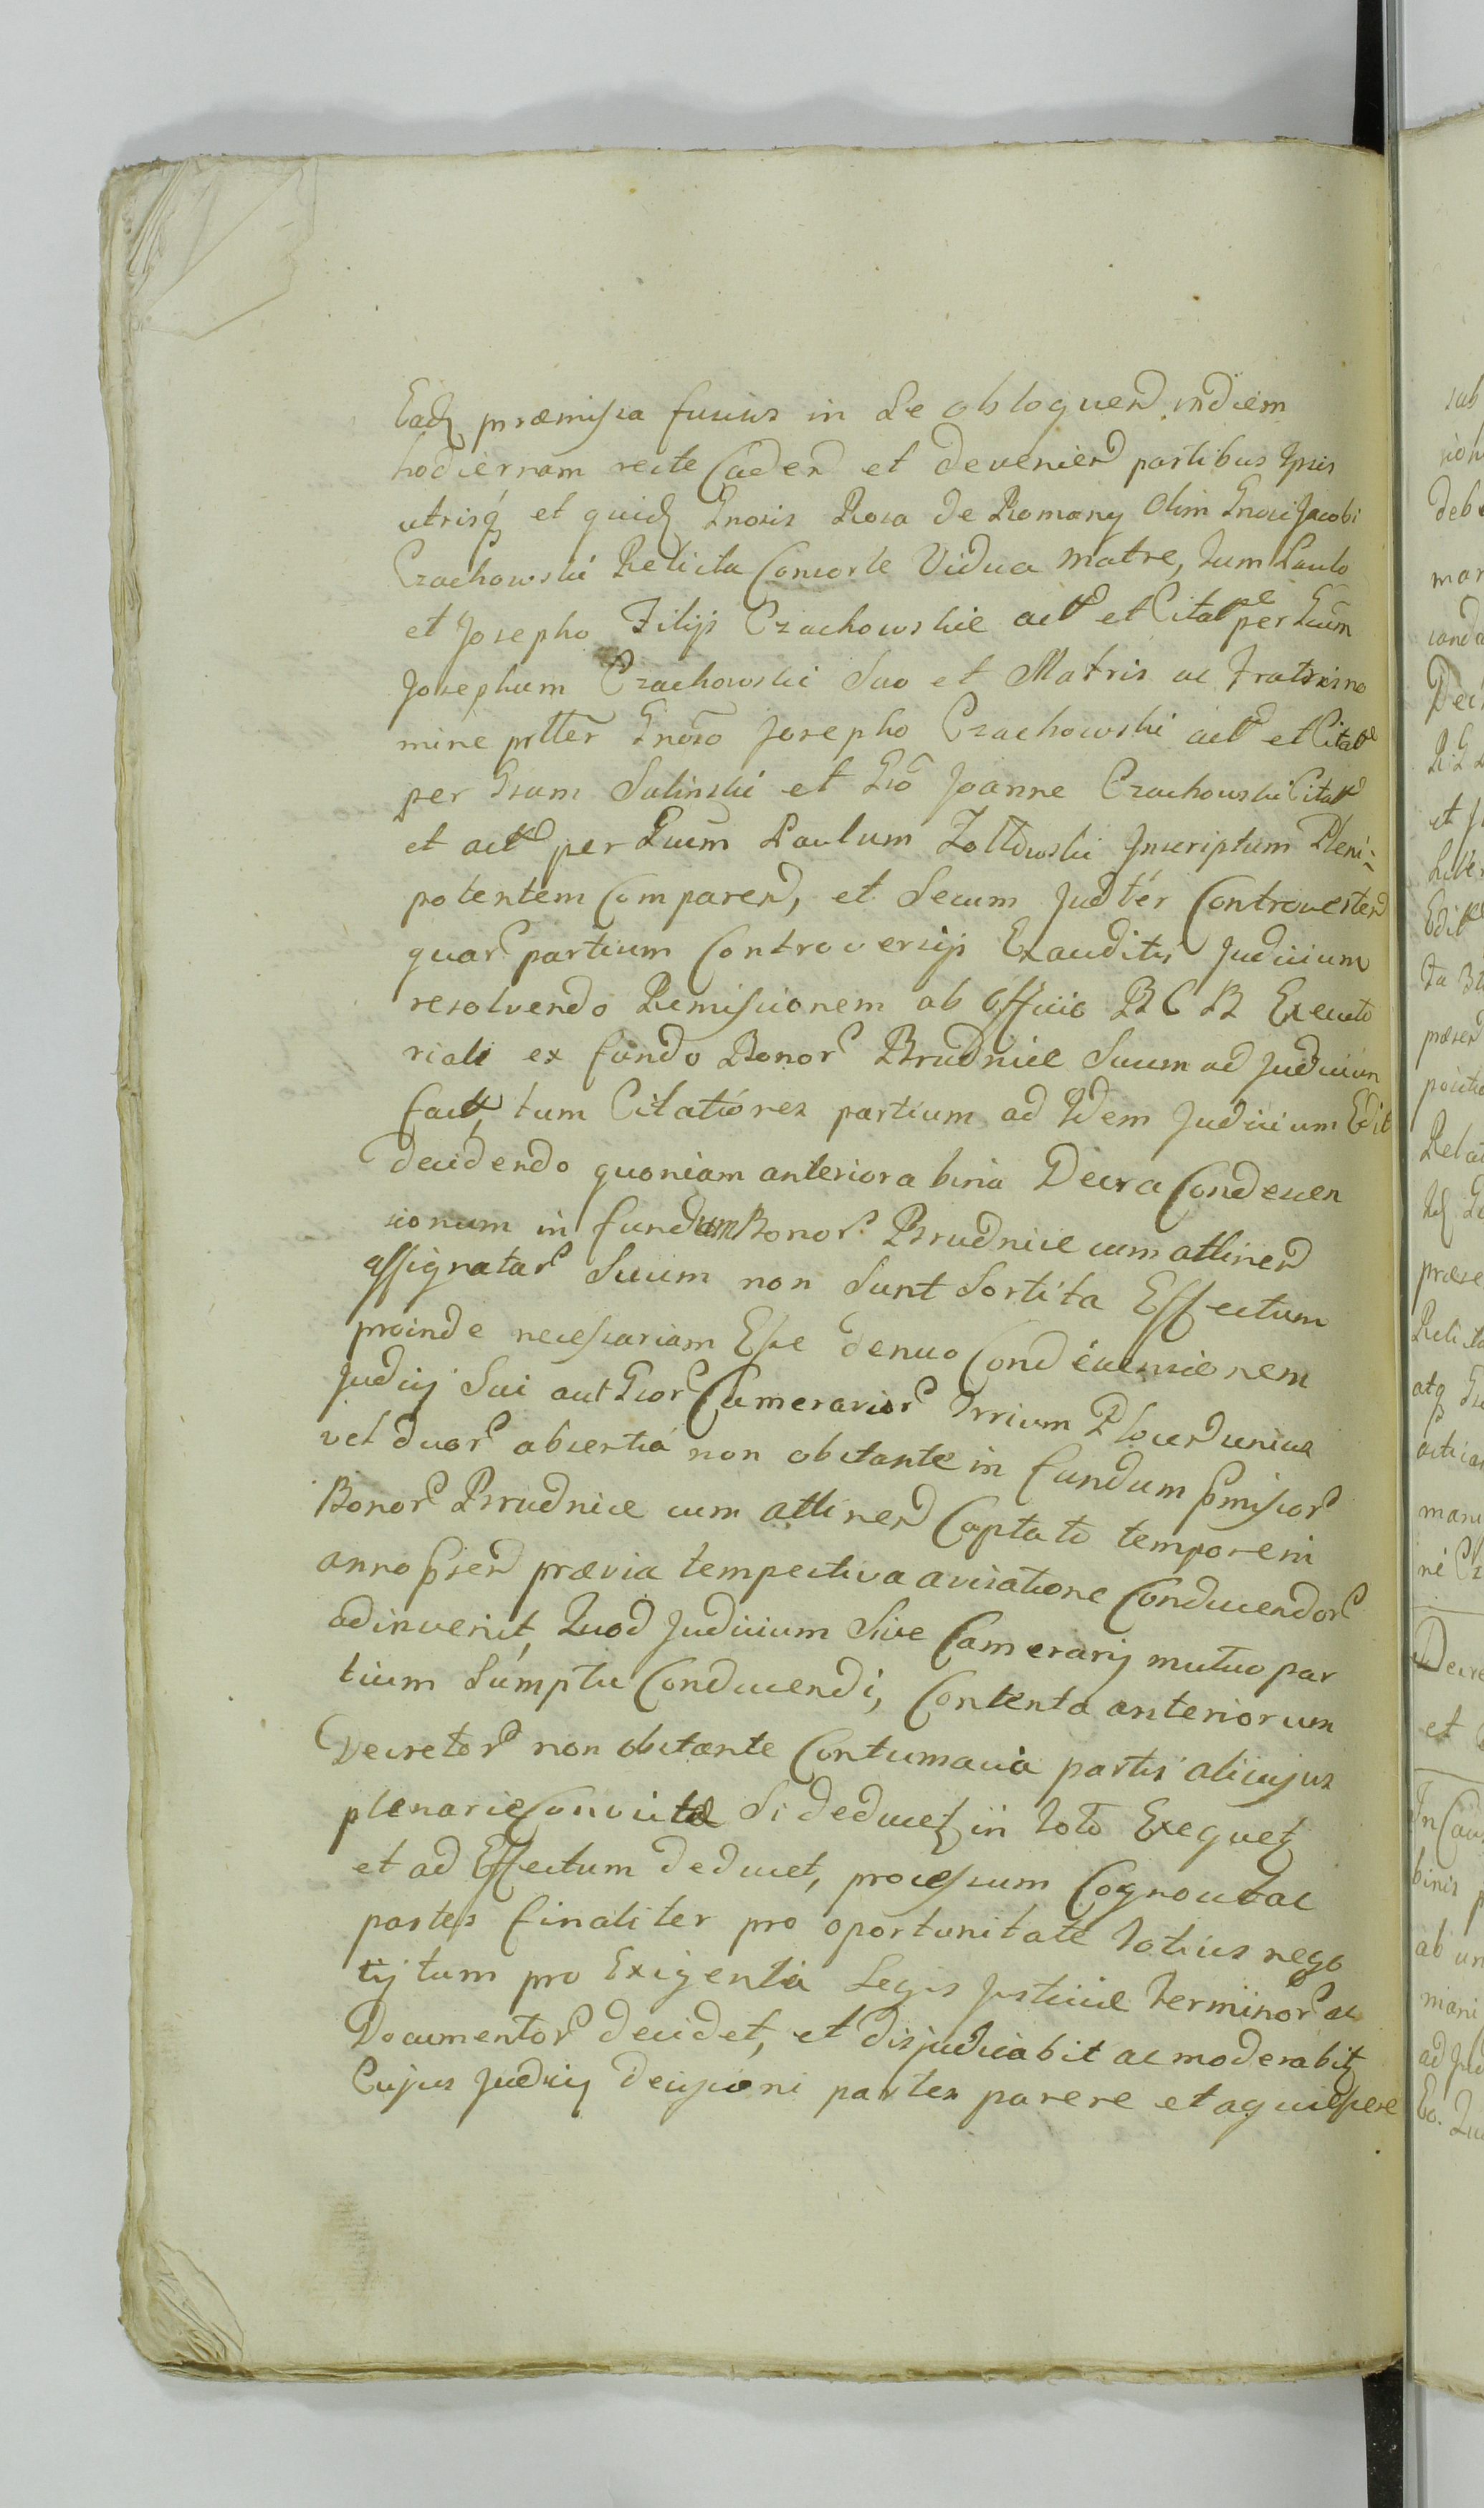 Eadq præmissa fusius in se obloquend in diem
hodiernam recte Caden et devenien partibus Ipsis
utrisq et quidq Gnosis Rosa de Romany Olim Gnosi Jacobi
Czachowski Relicta Consorte Vidua Matre, tum Paulo
et Josepho Filijs Czachowskie act et Citat per Gsum
Josephum Czachowski Suo et Matris ac Fratris no
mine prtter Gnoso Josepho Czachowski act et Citat
per Gsum Salinski et Gso Joanne Czachowski Citat
et act per Gsum Paulum Zoltowski Inscriptum Pleni-
potentem Comparen, et Secum Judter Controverten
quar partium Controversijs Exauditis Judicium
resolvendo Remissionem ab Officio B C B Executo
riali ex fundo Bonor Brudnice Suum ad Judicium
fact, tum Citationes partium ad Idem Judicium Edit
decidendo quoniam anteriora bina Decra Condescen
sionum in fundum Bonor Brudnice cum attinen
assignatar Suum non Sunt Sortita Effectum
proinde necessariam Esse denuo Condescensionem
Judicij Sui aut Gsor Camerarior Trrium Plocen unius
vel duor absentia non obstante in fundum pmissor
Bonor Brudnice cum attinen Captato tempore in
anno psen prævia tempestiva avisatione Conducendor
adinvenit, Quod Judicium Sive Camerarij mutuo par
tium Sumptu Conducendi, Contenta anteriorum
Decretor non obstante Contumacia partis alicujus
plenarie Convictæ Si deducet in toto Exequet
et ad Effectum deducet, processum Cognoscet ac
partes finaliter pro oportunitate totius nego
tij tum pro Exigentia Legis Justitiæ terminor ac
Documentor decidet, et disjudicabit ac moderabit
Cujus Judicij decisioni partes parere et acquiescere